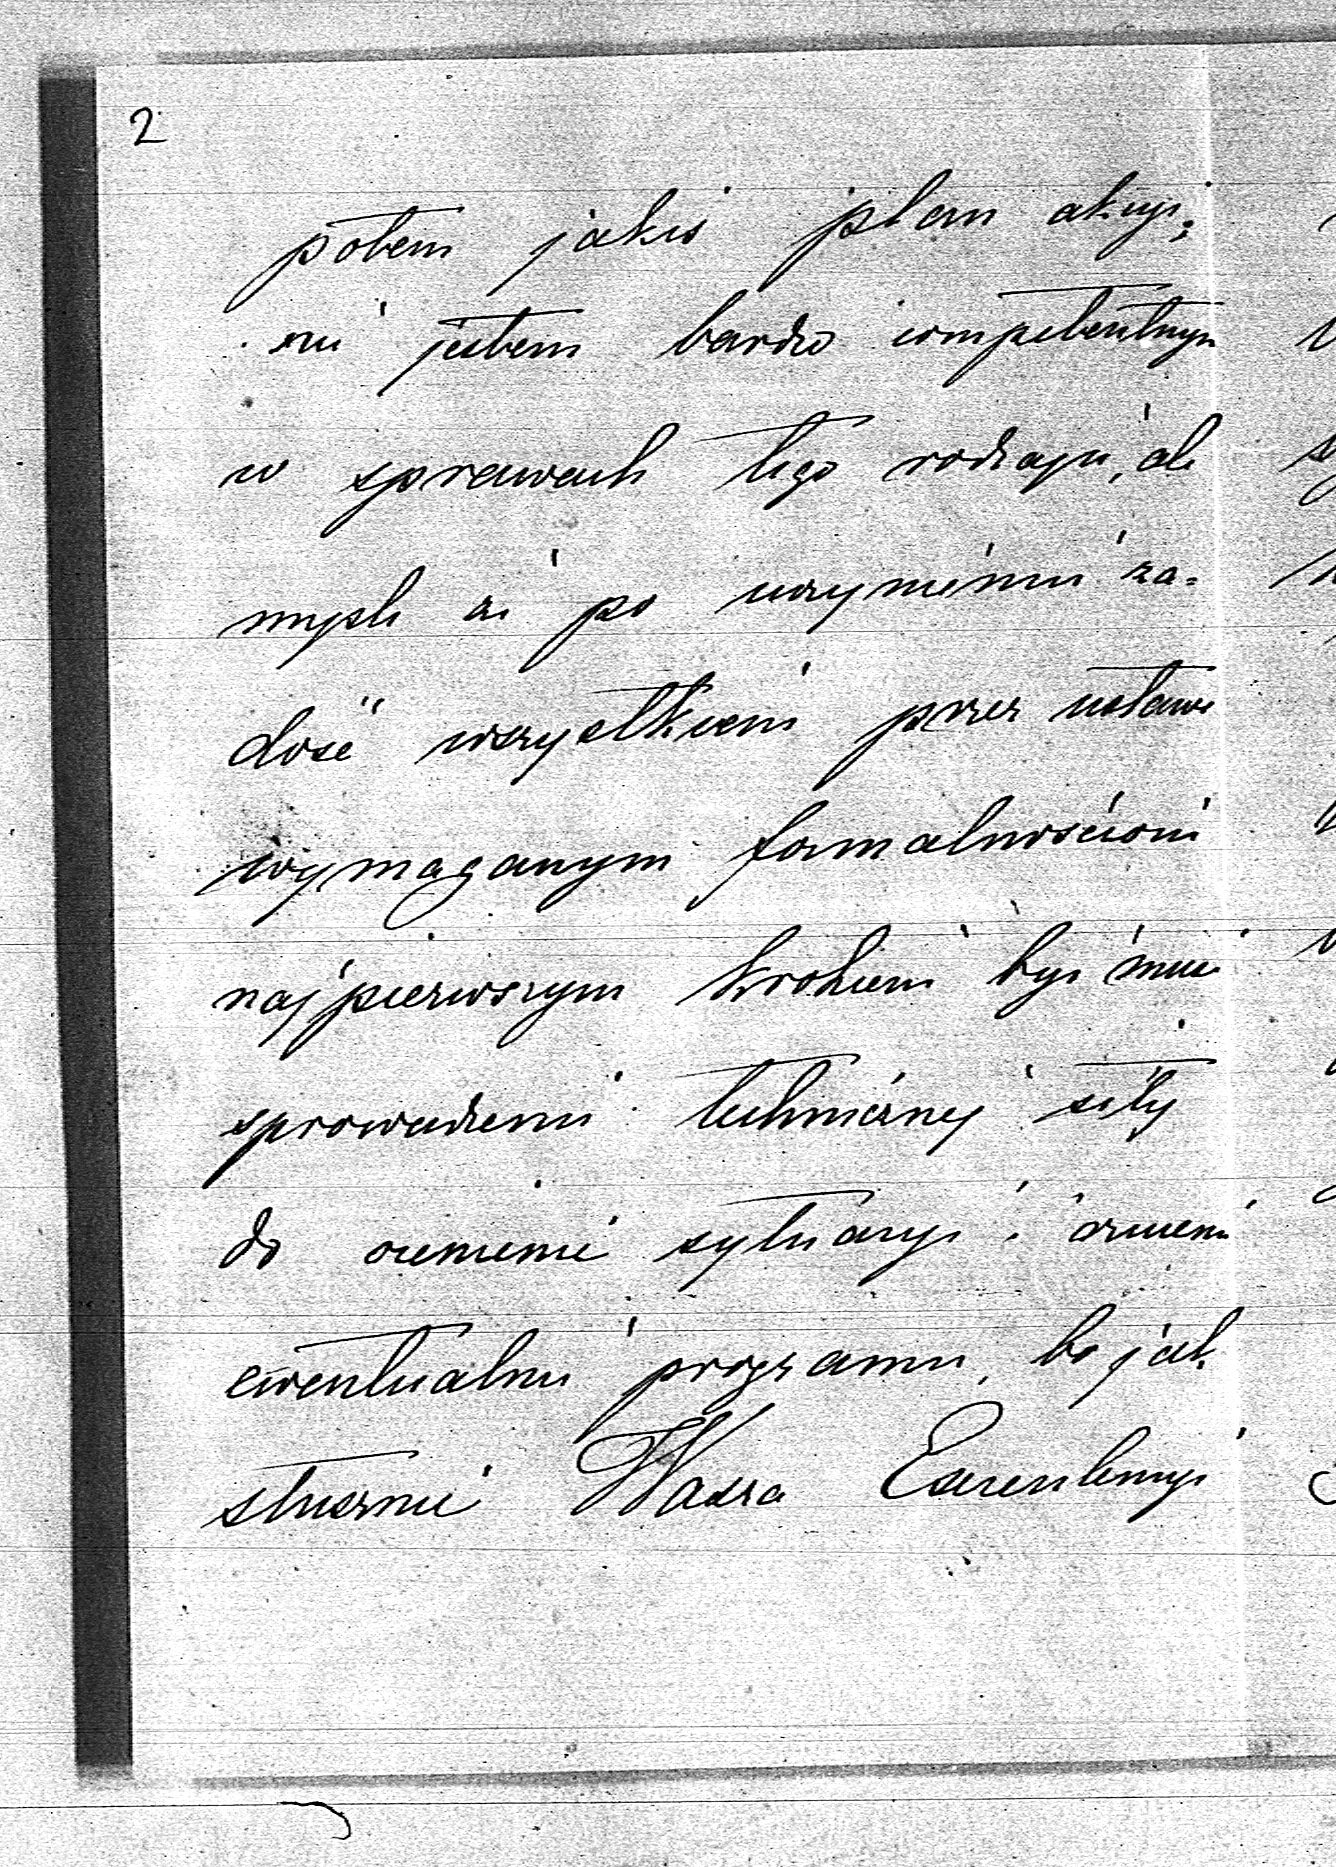 2
potem jakiś plan akcyi;
nie jestem bardzo competentnym
w sprawach tego rodzaju, ale
myślę że po uczynieniu za=
dość wszystkiem przez ustawę
wymaganym formalnościom
najpierwszym krokiem być musi
sprowadzenie technicznej siły
do ocenienia sytuacyi i
ewentualnie programu, bo jak
słusznie Wasza Excellencyi